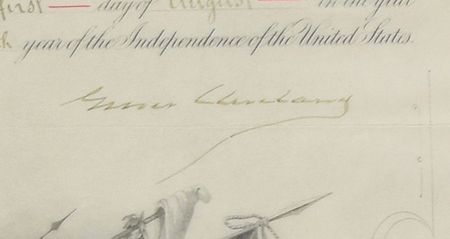 first day of August in the year
th year of the Independence of the United States.
Grover Cleveland